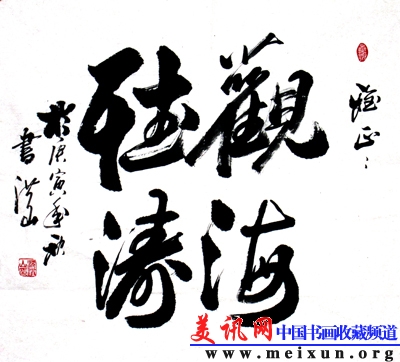 雅正
觀海
聽濤
於庚寅年秋
書洪山
美讯网 中国书画收藏频道
www.meixun.org